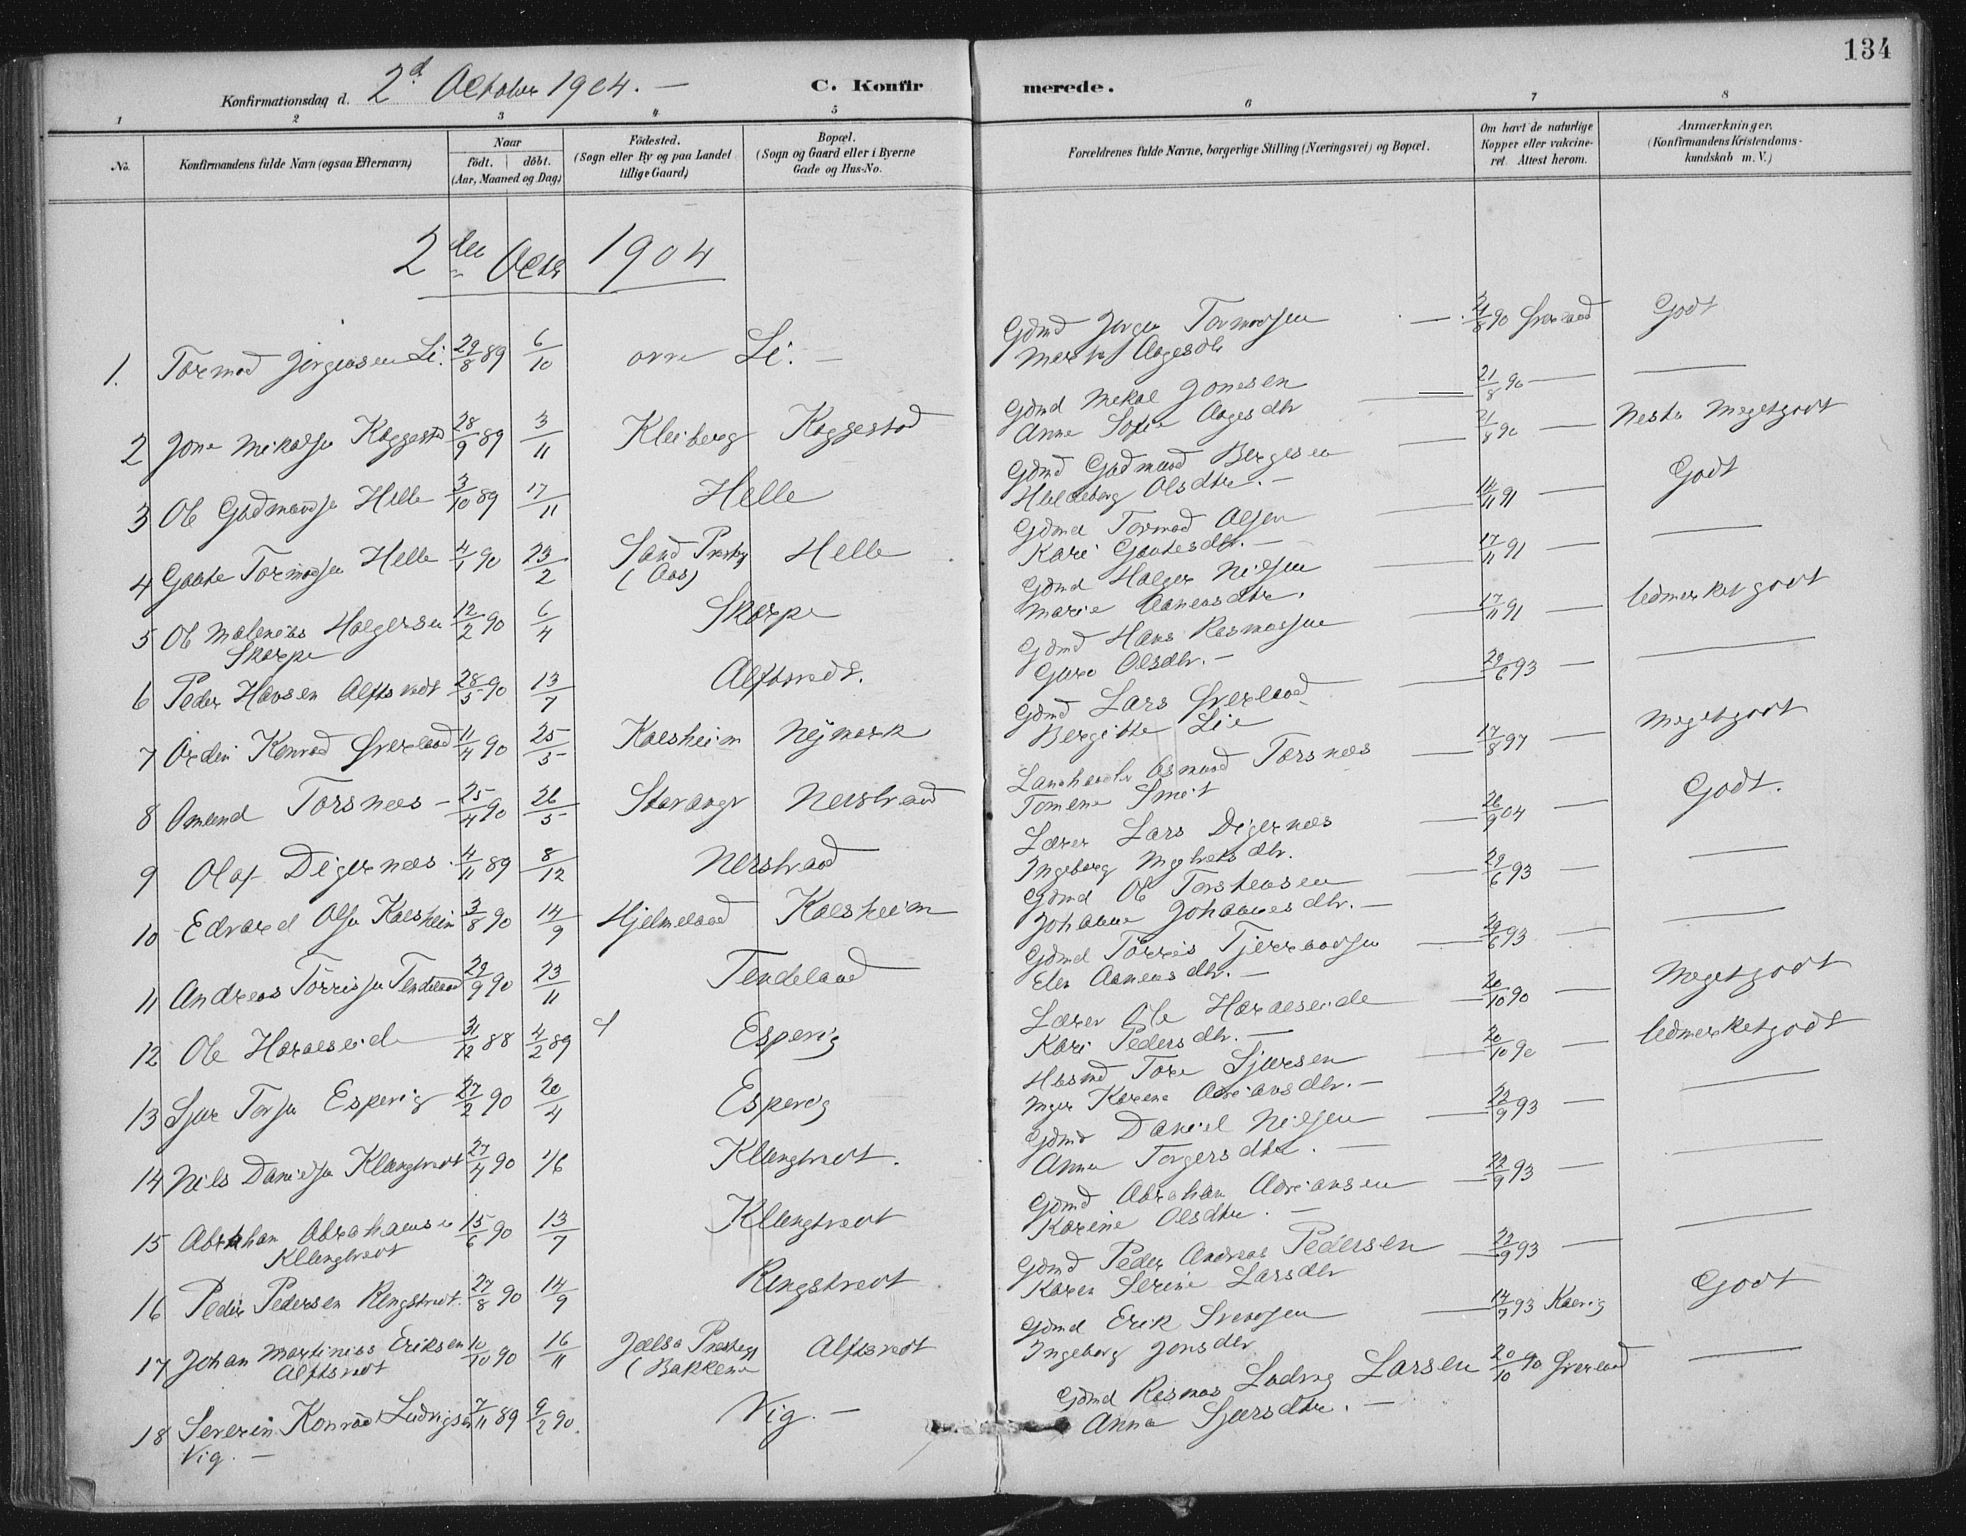 134
Konfirmationsdag d. 2d October 1904. —
C. Konfirmerede.
1 2 3 4 5 6 7 8
No. Konfirmandens fulde Navn (ogsaa Efternavn) Naar født. døbt. (Aar, Maaned og Dag) Födested. (Sogn eller By og paa Landet tillige Gaard) Bopæl. (Sogn og Gaard eller i Byerne Gade og Hus-No. Forældrenes fulde Navne, borgerlige Stilling (Næringsvei) og Bopæl. Om havt de naturlige Kopper eller vaccineret. Attest herom. Anmærkninger. (Konfirmandens Kristendomskundskab m. V.)
2den Octr 1904
1. Tormod Jørgensen Li. 29/8 89 6/10 Li. — Gdmd Jørgen Tormodsen — 90 Godt
Aagesdtr
2 Jone Mikalsen Køggestd 28/9 89 3/11 Kleiberg Køggestød Gdmd Mikal Jonesen — 21/8 90 — —
Anne Sofie Aagesdtr
3 Ole Gudmundsen Helle 3/10 89 17/11 Helle Gdmd Gudmund Bergesen — 21/8 90 — Nesten Megetgodt
Olsdtr. —
4 Gaute Tormodsen Helle 4/1 90 23/2 Sand Prestg (Aas) Helle Gdmd Tormod Olsen — 14/11 91 — Godt
Kari Gautesdtr. —
5 Ole Malenius Holgersen 12/2 90 6/4 Skorpe Gdmd Holger Nilsen — 17/11 91 — —
Skorpe Marie Aanensdtr.
6 Peder Hansen Alftsvedt 28/5 90 13/7 Alftsvedt. Gdmd Hans Rasmussen — 17/11 91 — Udmerketgodt
Guro Olsdtr. —
7 Konrad 11/4 90 25/5 Kaesheim Nymark Gdmd Lars — 29/6 93 — —
Bergitte Lie
8 Torsnees — 25/4 90 26/5 Stavanger Nerstrand Landhandlr Asmund Torsnæs — 17/8 97 — Megetgodt
Tomine
9 Olaf Digernæs. 4/11 89 8/12 Nerstrand Lærer Lars Digernæs — 26/9 04 — Godt.
Ingeborg
10 Edvard Olsen Kaesheim 3/8 90 14/9 Hjelmeland Kaesheim Gdmd Ole Torstensen — 29/6 93 — —
Johanne Johannesdtr. —
11 Andreas Törrisen Tendeland 29/9 90 23/11 Tendeland Gdmd Törris — 29/6 93 — —
Elen Aanensdtr. —
12 Ole Haraeseide 31/12 88 4/2 89 Espevig Lærer Ole Haraeseide — 20/10 90 — Megetgodt
Kari Pedersdtr. —
13 Sjur Torsen Espevig 27/2 90 20/4 Espevig Husmd Tore Sjursen — 20/10 90 — Udmerketgodt
Karine Adriansdtr. —
14 Nils Danielsen Klungtvedt 27/4 90 1/6 Klungtvedt. Gdmd Daniel Nilsen — 22/9 93 — —
Anna Torgersdtr. —
15 Abraham Abrahamsen 15/6 90 13/7 Klungtvedt Gdmd Abraham Adriansen — 22/9 93 — —
Klungtvedt Karine Olsdtr. —
16 Peder Pedersen Ringstvedt. 27/8 90 14/9 Ringstvedt Gdmd Peder Andreas Pedersen — 22/9 93 — —
Karen Serine Larsdtr
17 Johan Martinius Eriksen 10/10 90 16/11 Jælsa Prestegj (Bakken) Alftsvedt Gdmd Erik — 14/7 93 Godt
Alftsvedt Ingeborg Jonsdtr
18 Severin Konrad Ludvigsen 7/11 89 9/2 90. Vig. — Gdmd Rasmus Ludvig Larsen 20/10 90 —
Vig. — Anna Sjursdtr. —